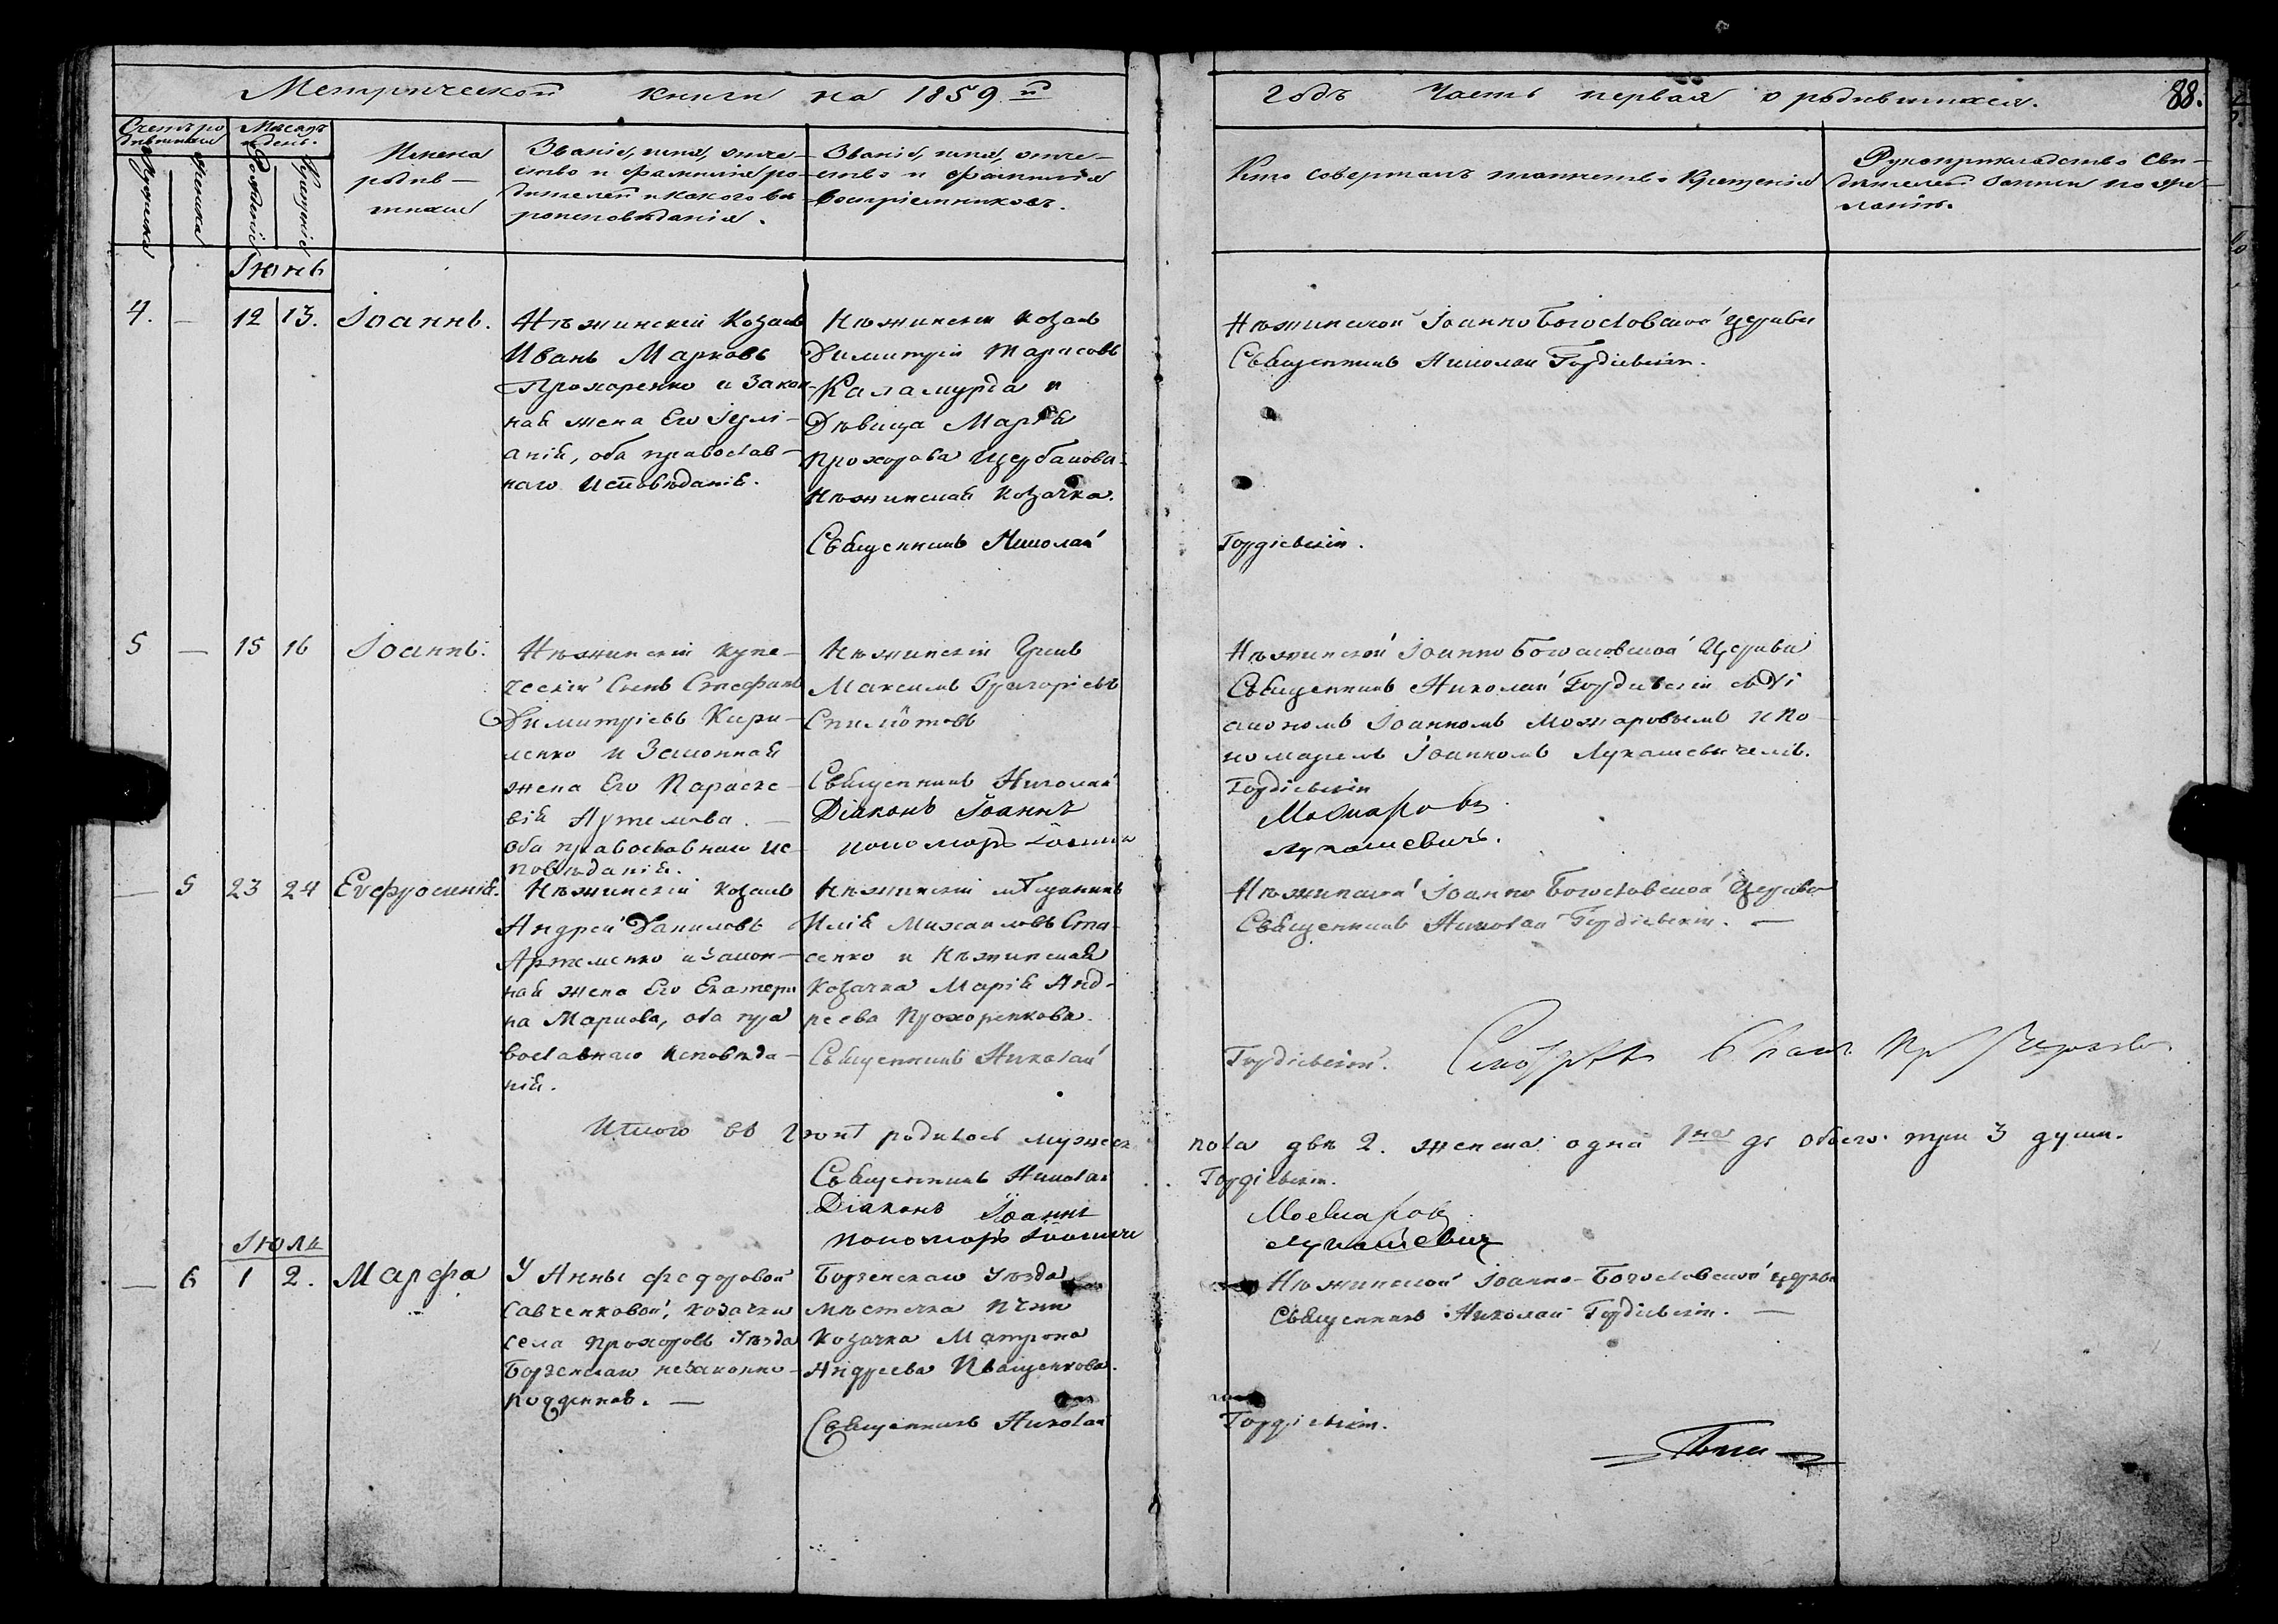 Метрической книги на 1859 й
годъ Часть первая о родившихся. 88.
Счетъ ро
дившихся
Мужеска
Женска
Мѣсяцъ
и день.
Рожденіе
Крещеніе
Имена
родив-
шихся
Званіе, имя, отче-
ство и фамилія ро-
дителей и какого вѣ
роисповѣданія.
Званіе, имя, отче-
ство и фамилія
воспріемниковъ.
Кто совершалъ таинство Крещенія
Рукоприкладство сви-
дѣтелей записи по же-
ланію.
Іюнь
4. — 12 13. Іоаннъ.
Нѣжинскій Козакъ
Иванъ Марковъ
Прохоренко и закон-
ная жена Его Іулі-
анія, оба православ-
наго Исповѣданія.
Нѣжинскій козакъ
Димитрій Тарасовъ
Каламурда и
Дѣвица Марія
Прохорова Щербакова
Нѣжинская козачка.
Священникъ Николай
Нѣжинской Іоанно Богословской Церкви
Священникъ Николай Гордіевскій.
Гордіевскій.
5 — 15 16 Іоаннъ.
Нѣжинскій купе-
ческій Сынъ Стефанъ
Димитріевъ Кири-
ленко и Законная
жена Его Параске-
вія Артемова. —
оба православнаго ис-
повѣданія.
Нѣжинскій Грекъ
Максимъ Григорьевъ
Священникъ Николай
Діаконъ Іоаннъ
пономарь Іоаннъ
Нѣжинской Іоанно Богословской Церкви
Священникъ Николай Гордіевскій съ Ді
акономъ Іоанномъ Можаровымъ и По-
номаремъ Іоанномъ Лукашевичемъ.
Гордіевскій
Можаровъ
Лукашевичъ.
— 5 23 24 Евфросинія.
Нѣжинскій козакъ
Андрей Даниловъ
Артеменко и закон-
ная жена Его Екатери
на Маркова, оба пра
вославнаго исповѣда-
нія.
Нѣжинскій мѣщанинъ
Илія Михаиловъ Ста-
сенко и Нѣжинская
козачка Марія Анд-
реева Прохоренкова.
Священникъ Николай
Нѣжинской Іоанно Богословской Церкви
Священникъ Николай Гордіевскій. —
Гордіевскій.
Итого въ Іюнѣ родилось мужеск
пола двѣ 2. женска одна 1на а обоего три 3 души.
Священникъ Николай
Гордіевскій.
Діаконъ Іоаннъ
Можаровъ
пономарь Іоаннъ
Лукашевичъ
Іюля
— 6 1 2. Марфа
У Анны Федоровой
Савченковой, козачки
села Прохоровъ Уѣзда
Борзенскаго незаконно-
рожденная. —
Борзенскаго Уѣзда
мѣстечка Ични
Козачка Матрона
Андреева Иващенкова.
Священникъ Николай
Нѣжинской Іоанно-Богословской церкви
Священникъ Николай Гордіевскій. —
Гордіевскій.